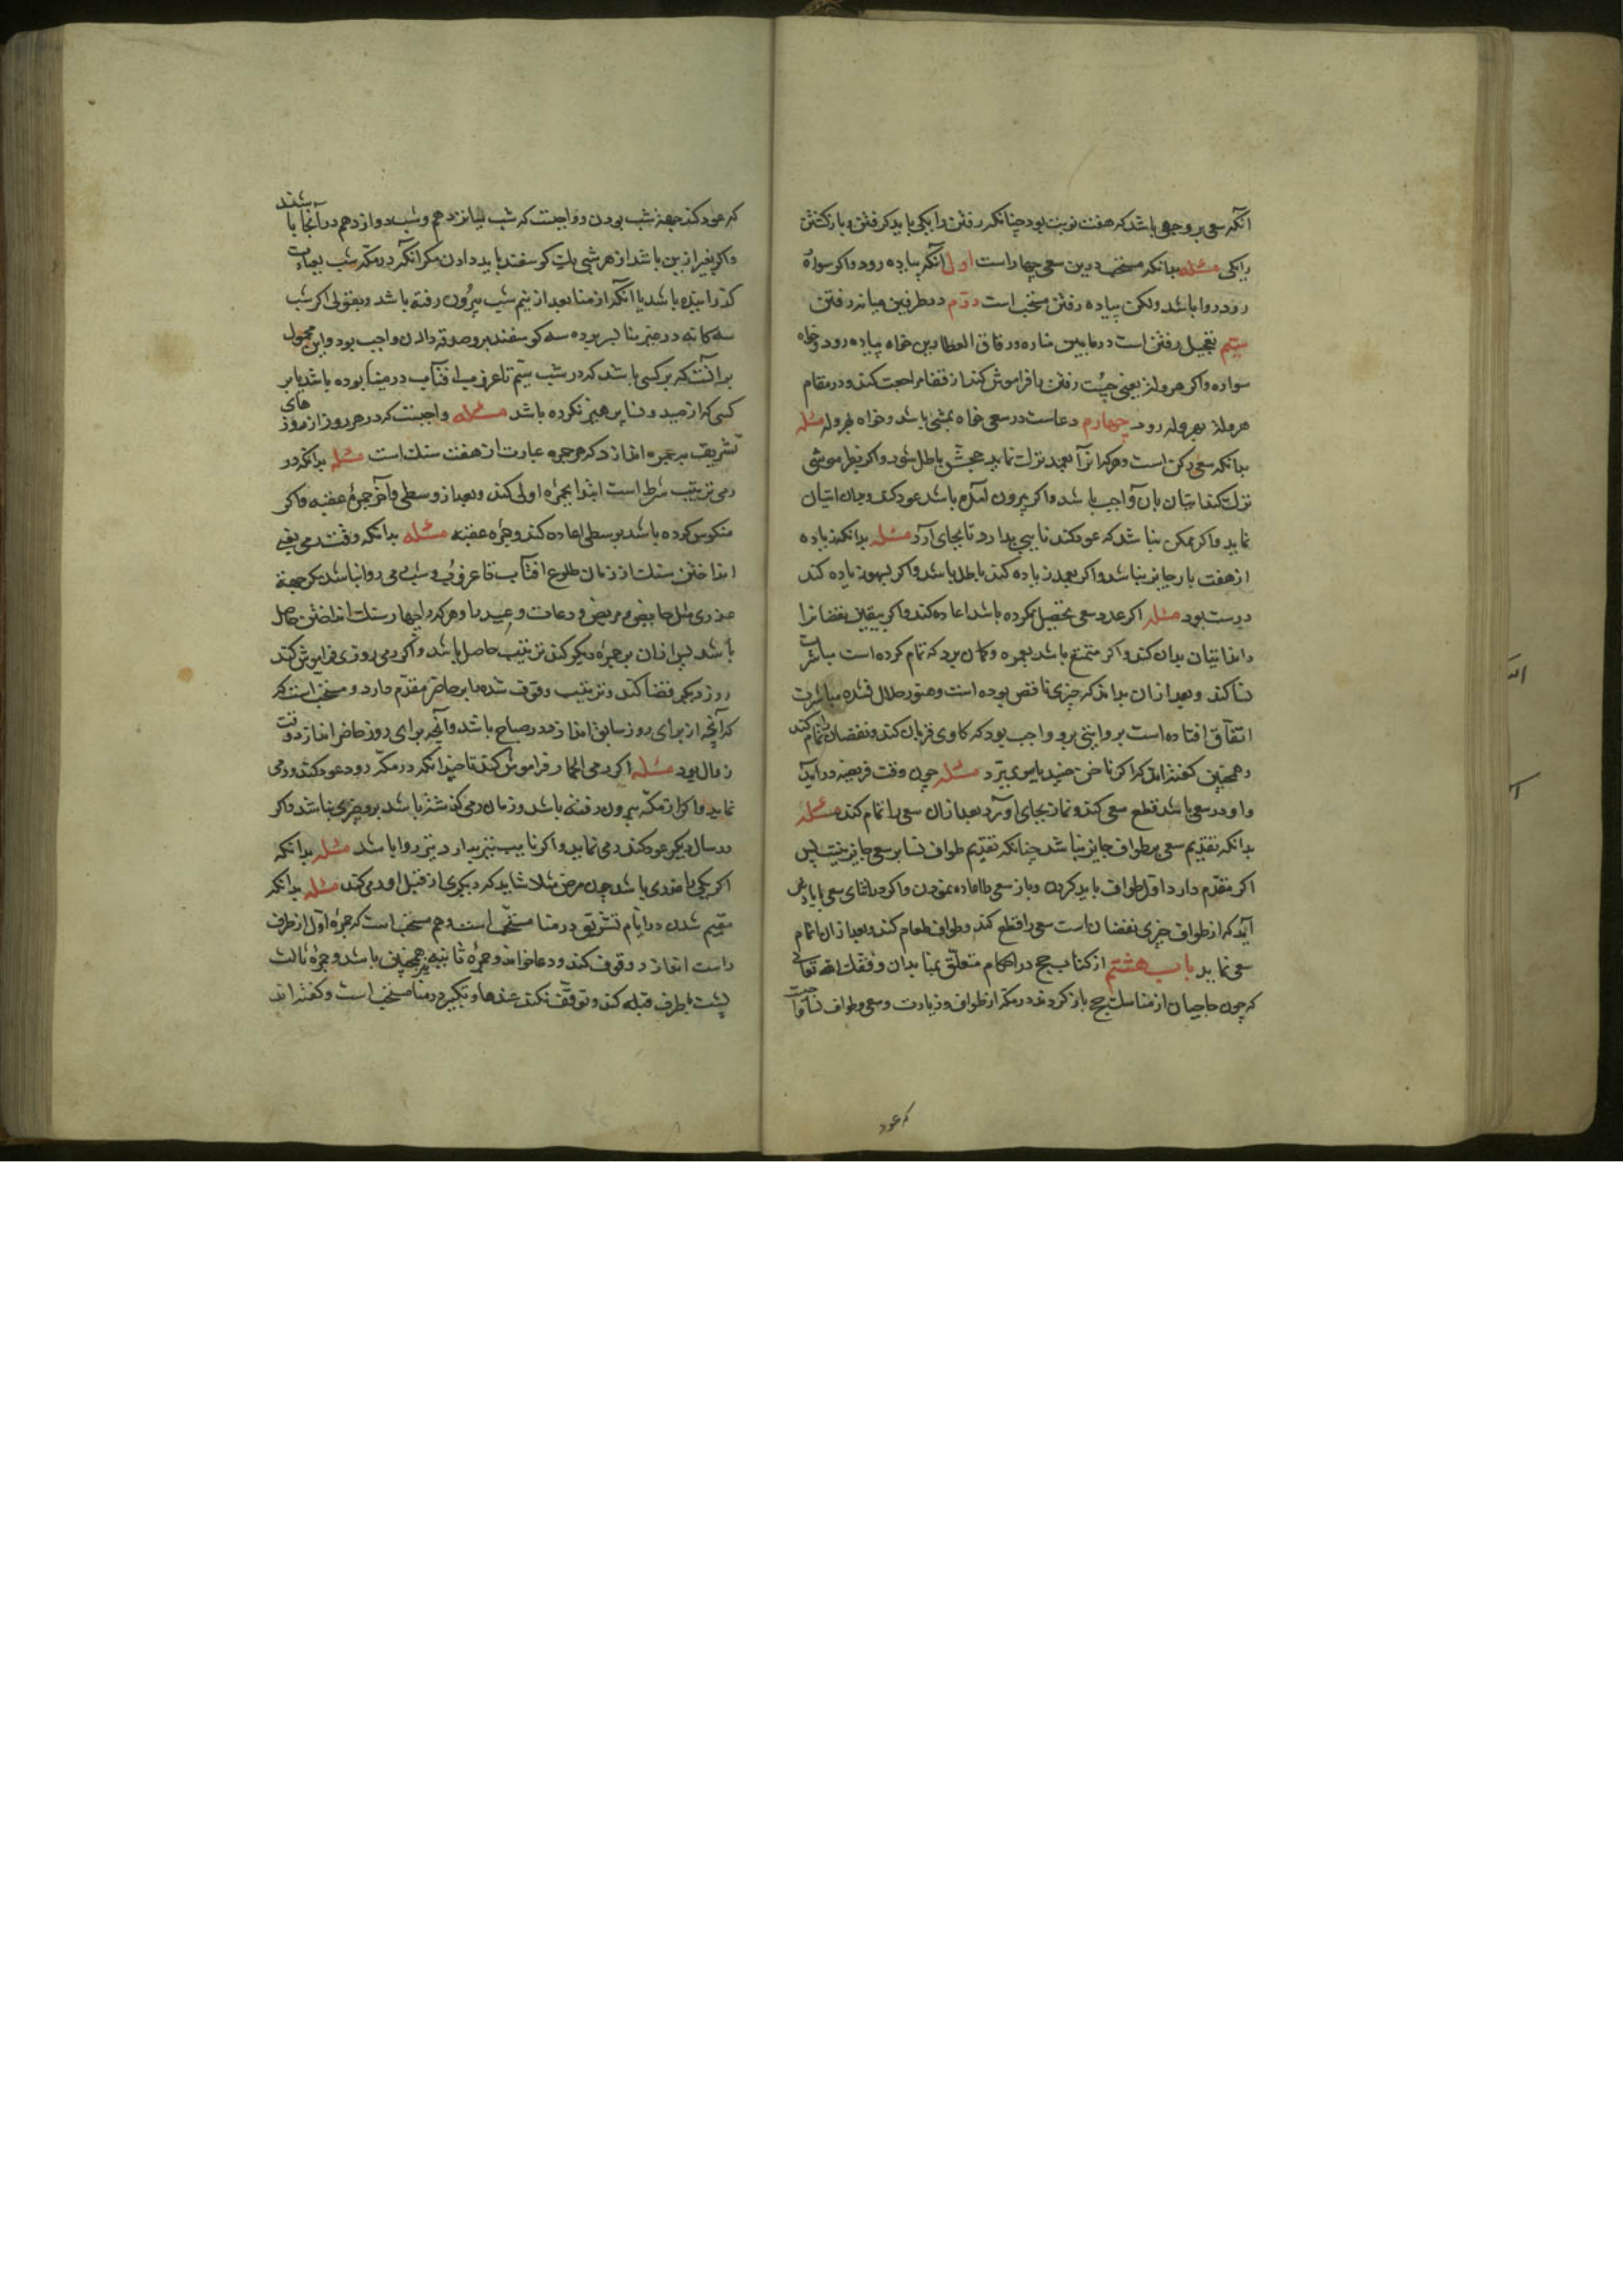 آنکه سعی بر وجهی باشد که هفت نوبت بود چنانکه رفتن را یکی باید گرفتن و بازگشتن
را یکی مسئله بدانکه مستحب درین سعی چهار است اول آنکه پیاده رود واگر سواره
رود روا باشد ولکن پیاده رفتن مستحب است دوّم در طرفین میانه رفتن
سیّم تعجیل رفتن است در مابین مناره و زقاق العطارین خواه پیاده رود و خواه
سواره واگر هروله یعنی چست رفتن را فراموش کند از قفا مراجعت کند و در مقام
هروله بهروله رود چهارم دعاست در سعی خواه بمشی باشد و خواه بهروله مسئله
بدانکه سعی رکن است و هرکه آنرا بعمد ترک نماید حجش باطل شود واگر بفراموشی
ترک کند اتیان بآن واجب باشد واگر بیرون آمده باشد عود کند و بدان اتیان
نماید واگر ممکن نباشد که عود کند نایبی بدارد تا بجای آرد مسئله بدانکه زیاده
از هفت بار جایز نباشد واگر بعمد زیاده کند باطل باشد واگر بسهو زیاده کند
درست بود مسئله اگر عدد سعی تحصیل نکرده باشد اعاده کند واگر بیقین نقصانرا
داند اتیان بدان کند واگر متمتع باشد بعمره و گمان برد که تمام کرده است مباشرت
نسا کند و بعد از آن بداند که چیزی ناقص بوده است و هنوز حلال نشده مباشرت
اتفاق افتاده است بروایتی برو واجب بود که گاوی قربان کند و نقصانرا تمام کند
و همچنین گفته‌اند که اگر ناخن چیند یا موی بُرد مسئله چون وقت فریضه درآید
و او در سعی باشد قطع سعی کند و نماز بجای آورد بعد از آن سعی را تمام کند مسئله
بدانکه تقدیم سعی بر طواف جایز نباشد چنانکه تقدیم طواف نسا بر سعی جایز نیست پس
اگر مقدّم دارد اوّل طواف باید کردن و باز سعی را اعاده نمودن واگر در اثنای سعی با یادش
آید که از طواف چیزی نقصان است سعی را قطع کند و طواف تمام کند و بعد از آن اتمام
سعی نماید باب هشتم از کتاب حج در احکام متعلّق بمنا بدان وفقک الله تعالی
که چون حاجیان از مناسک حج بازگردند در مکه از طواف و زیارت و سعی و طواف نسا واجبست
که عود
که عود کند جهة شب بودن و واجبست که شب یازدهم و شب دوازدهم در آنجا باشند
واگر بغیر ازین باشد از هر شبی یک گوسفند باید دادن مگر آنکه در مکه شب بعبادت
گذرانیده باشد یا آنکه از منا بعد از نیم شب بیرون رفته باشد و بقولی اگر شب
سه‌گانه در غیر منا بسر برده سه گوسفند برو صدقه دادن واجب بود و این محمول
بر آنست که بر کسی باشد که در شب سیّم تا غروب آفتاب در منا بوده باشد یا بر
کسی که از صید و نسا پرهیز نکرده باشد مسئله واجبست که در هر روز از روزهای
تشریق سه جمره اندازد که هر جمره عبارت از هفت سنک است مسئله بدانکه در
رمی ترتیب شرط است ابتدا بجمرۀ اولی کند و بعد از وسطی و آخر جمرۀ عقبه واگر
منکوس کرده باشد بر وسطی اعاده کند و جمرۀ عقبه مسئله بدانکه وقت رمی یعنی
انداختن سنک از زمان طلوع آفتاب تا غروب و شب رمی روا نباشد مگر جهة
عذری مثل خایف و مریض و رعات و عبید را و هرکه را چهار سنک انداختن حاصل
باشد پس از آن بر جمرۀ دیگر کند ترتیب حاصل باشد واگر رمی روزی فراموش کند
روز دیگر قضا کند و ترتیب شده بر حاضر مقدّم دارد و مستحب است که
که آنچه از برای روز سابق اندازد در صباح باشد و آنچه برای روز حاضر اندازد وقت
زوال بود مسئله اگر رمی الجمار فراموش کند تا چندانکه در مکّه رود عود کند و رمی
نماید واگر از مکّه بیرون رفته باشد و زمان رمی گذشته باشد برو چیزی نباشد واگر
در سال دیگر عود کند رمی نماید واگر نایب نیز بدارد نیز روا باشد مسئله بدانکه
اگر یکی را عذری باشد چون مرض مثلا شاید که دیگری از قبل او رمی کند مسئله بدانکه
مقیم شدن در ایّام تشریق در منا مستحب است و هم مستحب است که جمرۀ اوّل از طرف
راست اندازد و وقوف کند و دعا خواند و جمرۀ ثانیه نیز همچنین باشد و جمرۀ ثالث
پشت بطرف قبله کند و توقّف نکند عندها و تکبیر در منا مستحب است و گفته‌اند